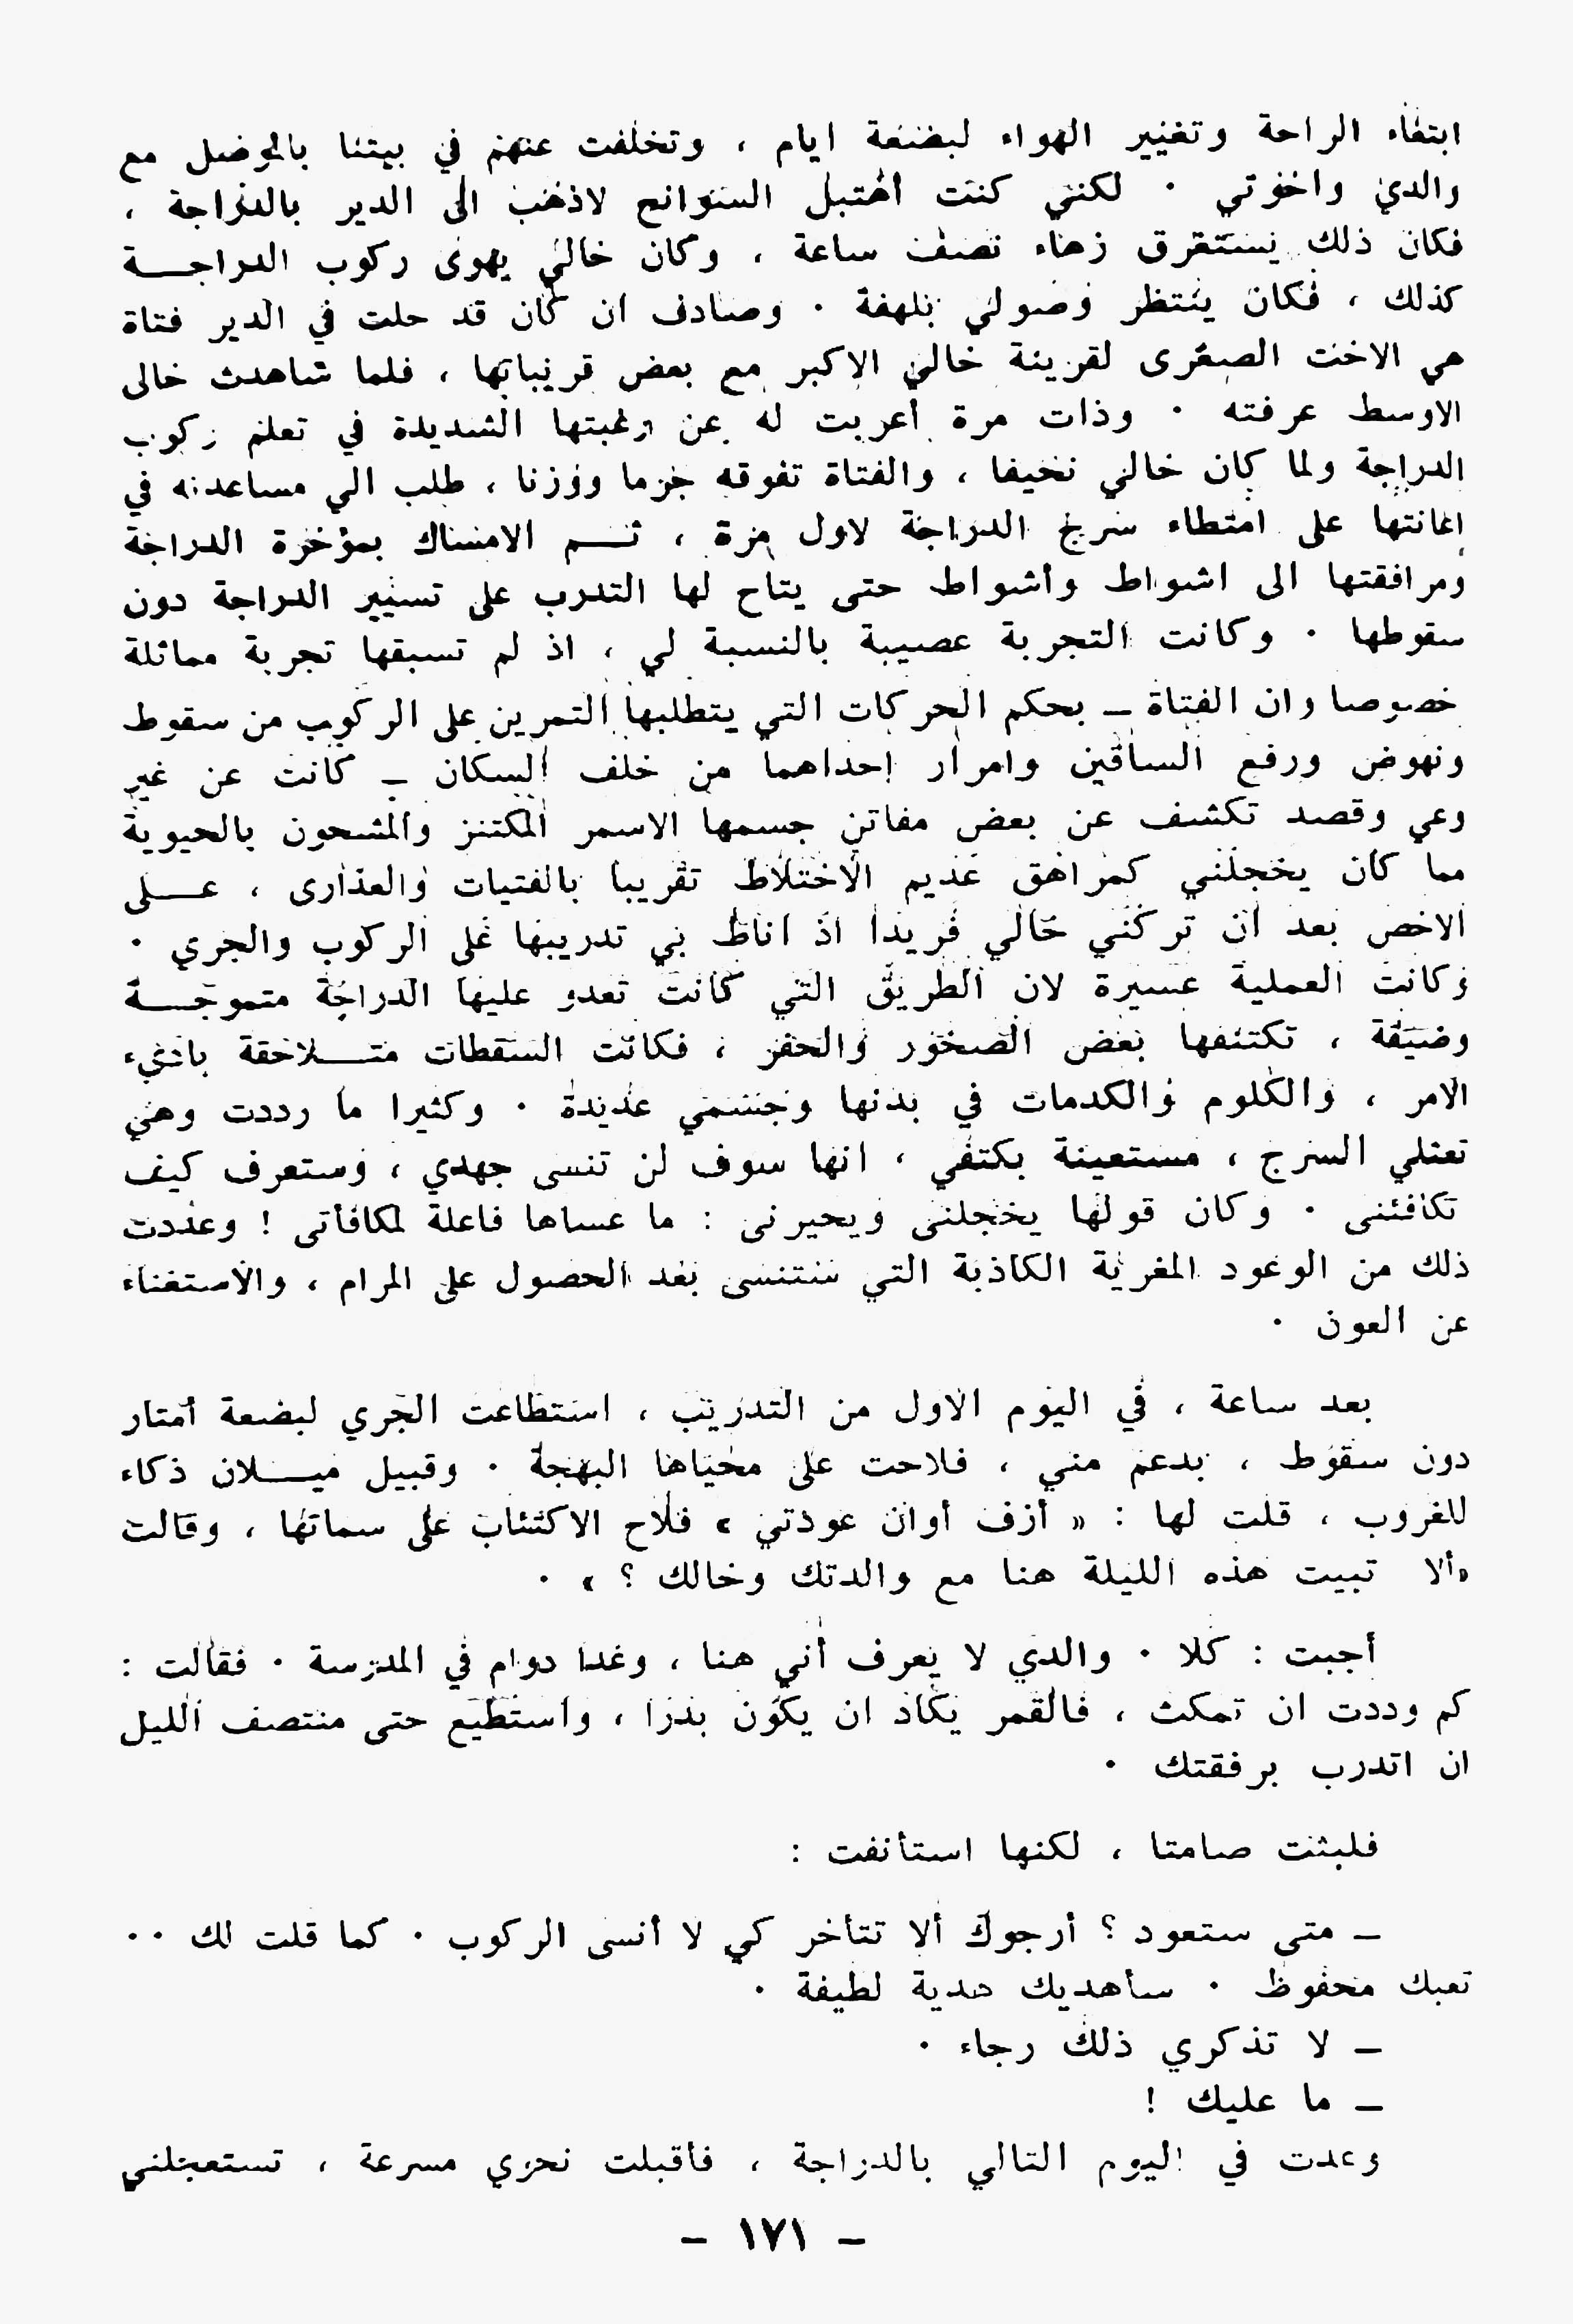 ابتغاء الراحة وتغيير الهواء لبضعة ايام ، وتخلفت عنهم في بيتنا بالموصل مع
والدي واخوتي . لكنني كنت أهتبل السوانح لاذهب الى الدير بالدراجة ،
فكان ذلك يستغرق زهاء نصف ساعة ، وكان خالي يهوى ركوب الدراجة
كذلك ، فكان ينتظر وصولي بلهفة . وصادف ان كان قد حلت في الدير فتاة
هي الاخت الصغرى لقرينة خالي الاكبر مع بعض قريباتها ، فلما شاهدت خالى
الاوسط عرفته . وذات مرة أعربت له عن رغبتها الشديدة في تعلم ركوب
الدراجة ولما كان خالي نحيفا ، والفتاة تفوقه جرما ووزنا ، طلب الي مساعدته في
إعانتها على امتطاء سرج الدراجة لاول مرة ، ثم الامساك بمؤخرة الدراجة
ومرافقتها الى اشواط وأشواط حتى يتاح لها التدرب على تسيير الدراجة دون
سقوطها . وكانت التجربة عصيبة بالنسبة لي ، اذ لم تسبقها تجربة مماثلة
خصوصا وان الفتاة – بحكم الحركات التي يتطلبها التمرين على الركوب من سقوط
ونهوض ورفع الساقين وامرار إحداهما من خلف السكان – كانت عن غير
وعي وقصد تكشف عن بعض مفاتن جسمها الاسمر المكتنز والمشحون بالحيوية
مما كان يخجلني كمراهق عديم الاختلاط تقريبا بالفتيات والعذارى ، على
الاخص بعد أن تركني خالي فريدا اذ اناط بي تدريبها على الركوب والجري .
وكانت العملية عسيرة لان الطريق التي كانت تعدو عليها الدراجة متموجة
وضيقة ، تكتنفها بعض الصخور والحفر ، فكانت السقطات متلاحقة باديء
الامر ، والكلوم والكدمات في بدنها وجسمي عديدة . وكثيرا ما رددت وهي
تعتلي السرج ، مستعينة بكتفي ، انها سوف لن تنسى جهدي ، وستعرف كيف
تكافئنى . وكان قولها يخجلنى ويحيرنى : ما عساها فاعلة لمكافأتى ! وعددت
ذلك من الوعود المغرية الكاذبة التي ستنسى بعد الحصول على المرام ، والاستغناء
عن العون .
بعد ساعة ، في اليوم الاول من التدريب ، استطاعت الجري لبضعة أمتار
دون سقوط ، بدعم مني ، فلاحت على محياها البهجة . وقبيل ميلان ذكاء
للغروب ، قلت لها : « أزف أوان عودتي » فلاح الاكتئاب على سماتها ، وقالت
«ألا تبيت هذه الليلة هنا مع والدتك وخالك ؟ » .
أجبت : كلا . والدي لا يعرف أني هنا ، وغدا دوام في المدرسة . فقالت :
كم وددت ان تمكث ، فالقمر يكاد ان يكون بدرا ، واستطيع حتى منتصف الليل
ان اتدرب برفقتك .
فلبثت صامتا ، لكنها استأنفت :
– متى ستعود ؟ أرجوك ألا تتأخر كي لا أنسى الركوب . كما قلت لك . .
تعبك محفوظ . سأهديك هدية لطيفة .
– لا تذكري ذلك رجاء .
– ما عليك !
وعدت في اليوم التالي بالدراجة ، فأقبلت نحوي مسرعة ، تستعجلني
– ١٧١ –